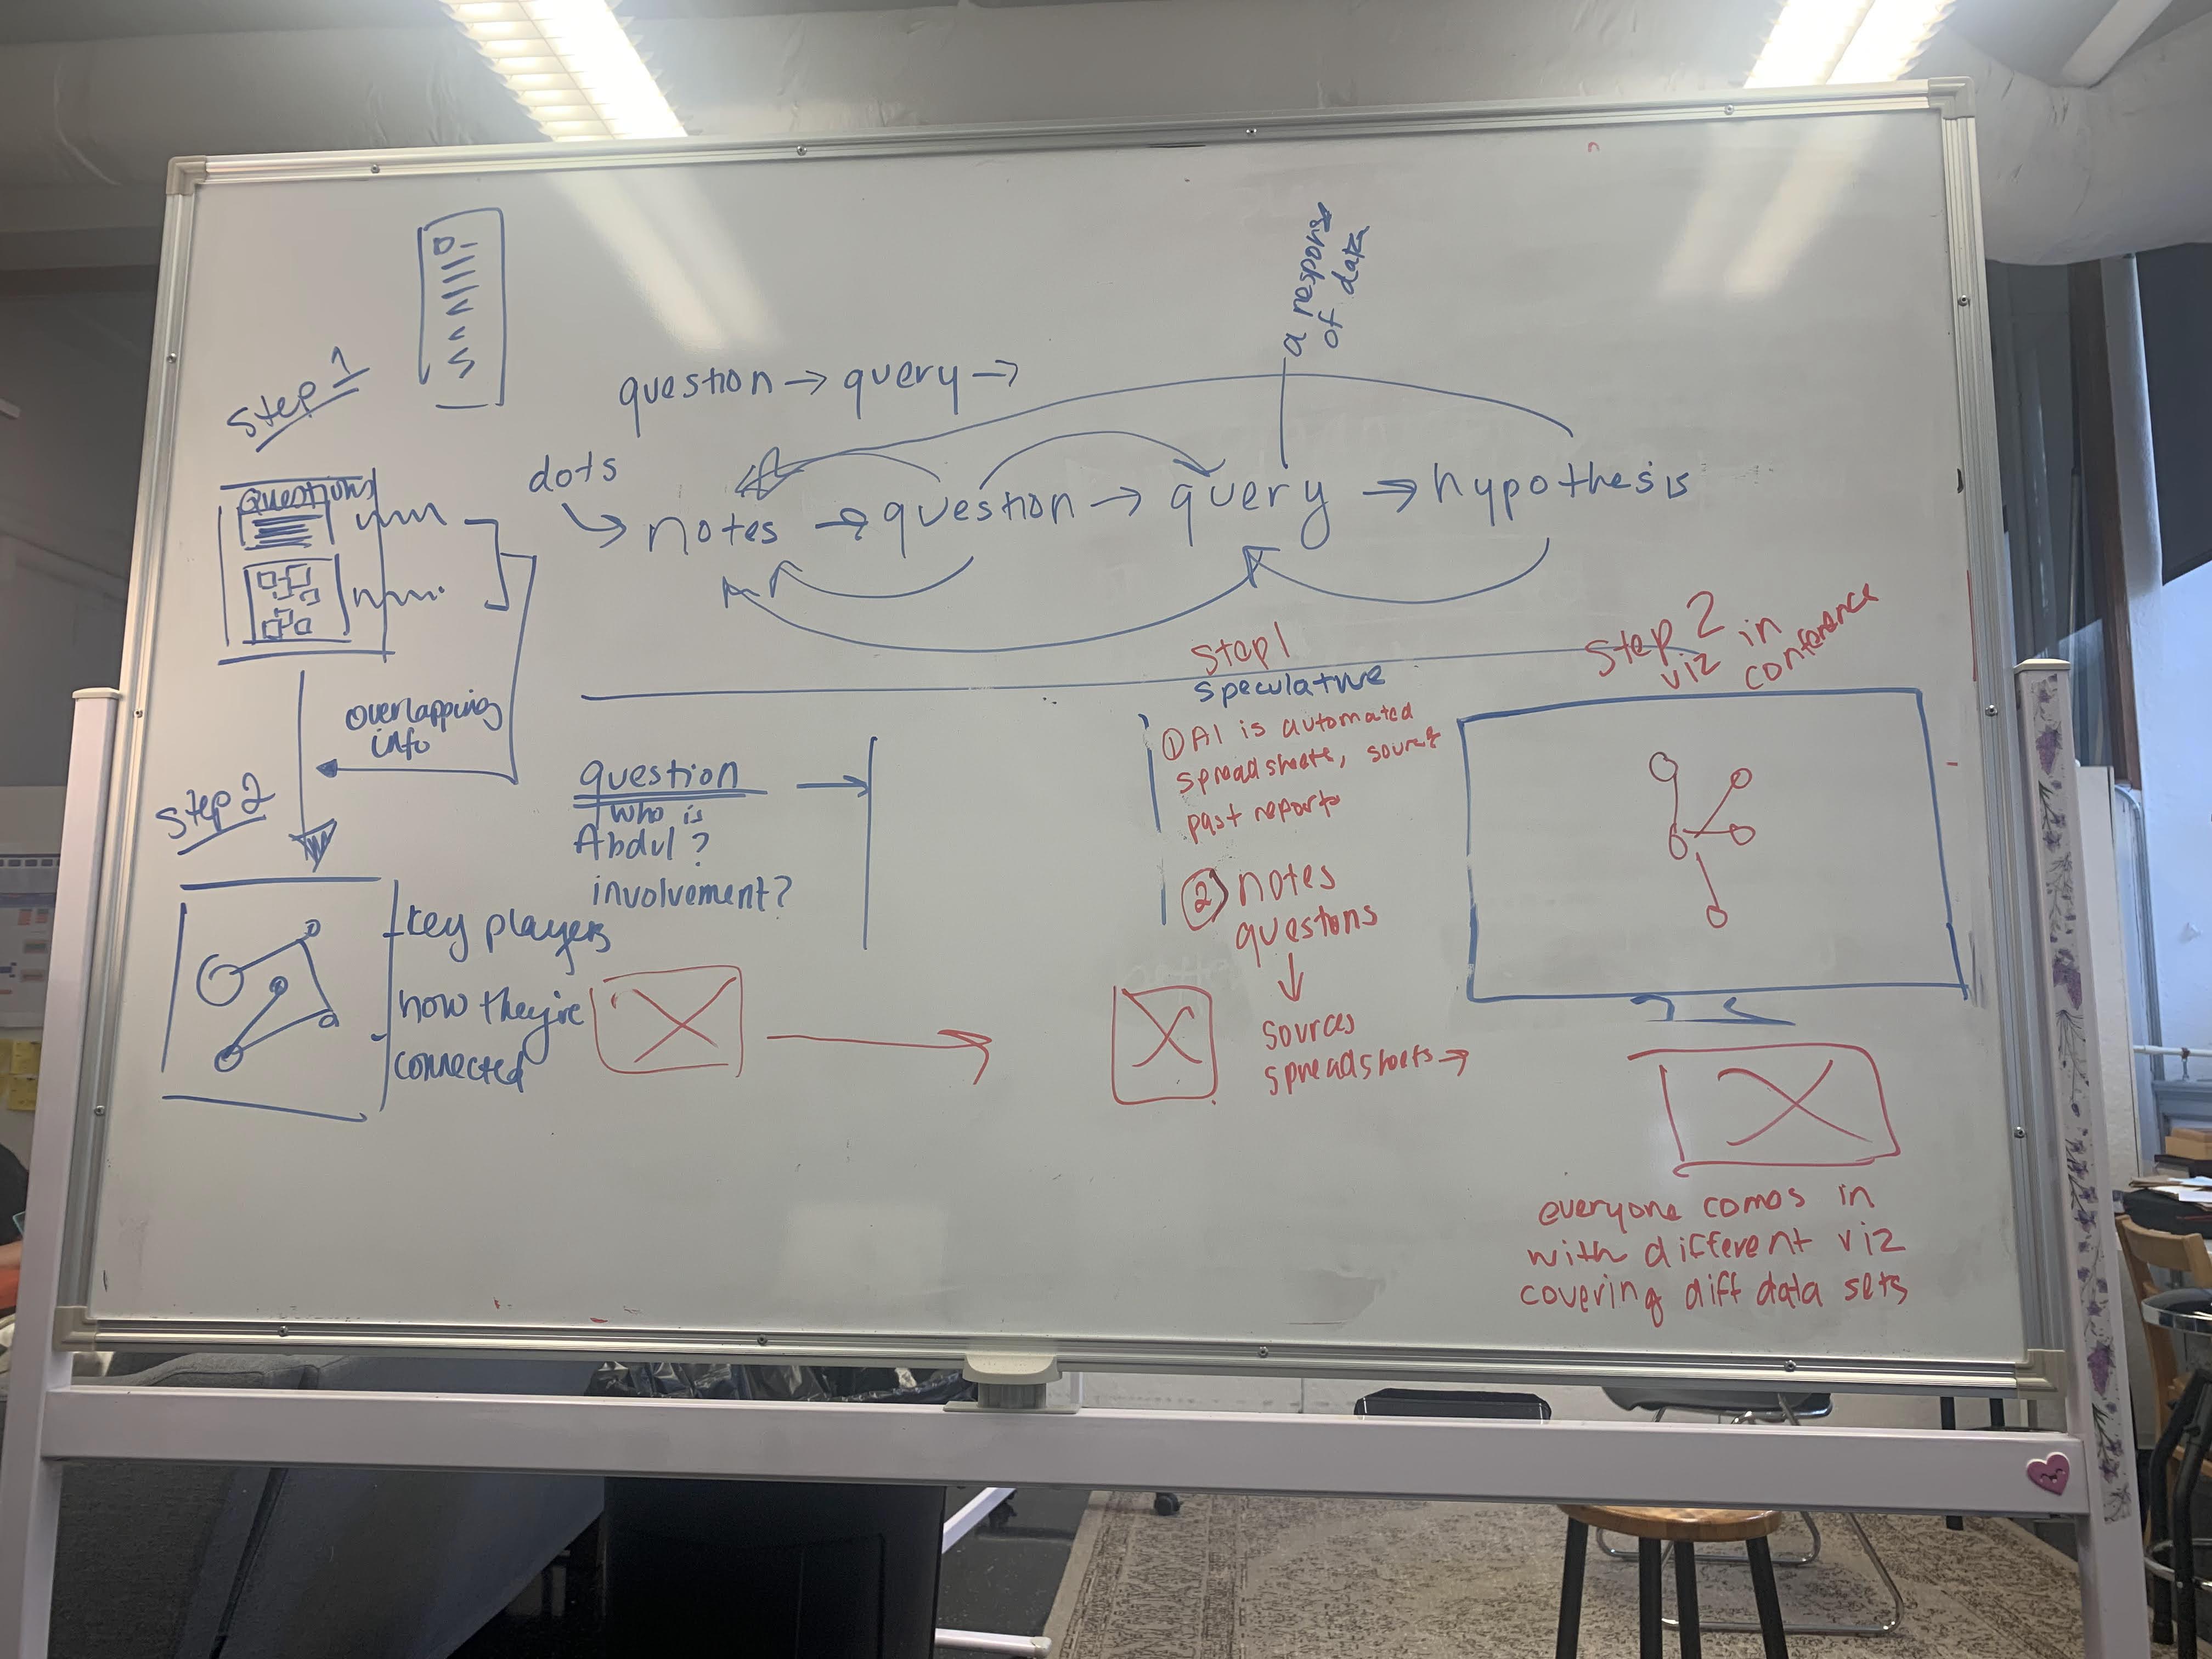 Step 1
question → query →
a response
of data
dots
notes → question → query → hypothesis
Questions
overlapping
info
Step 2
key players
how they're
connected
question
who is
Abdul?
involvement?
Step 1
speculative
① AI is automated
spreadsheets, sources
past reports
② notes
questions
↓
sources
spreadsheets →
Step 2
viz in
conference
everyone comes in
with different viz
covering diff data sets